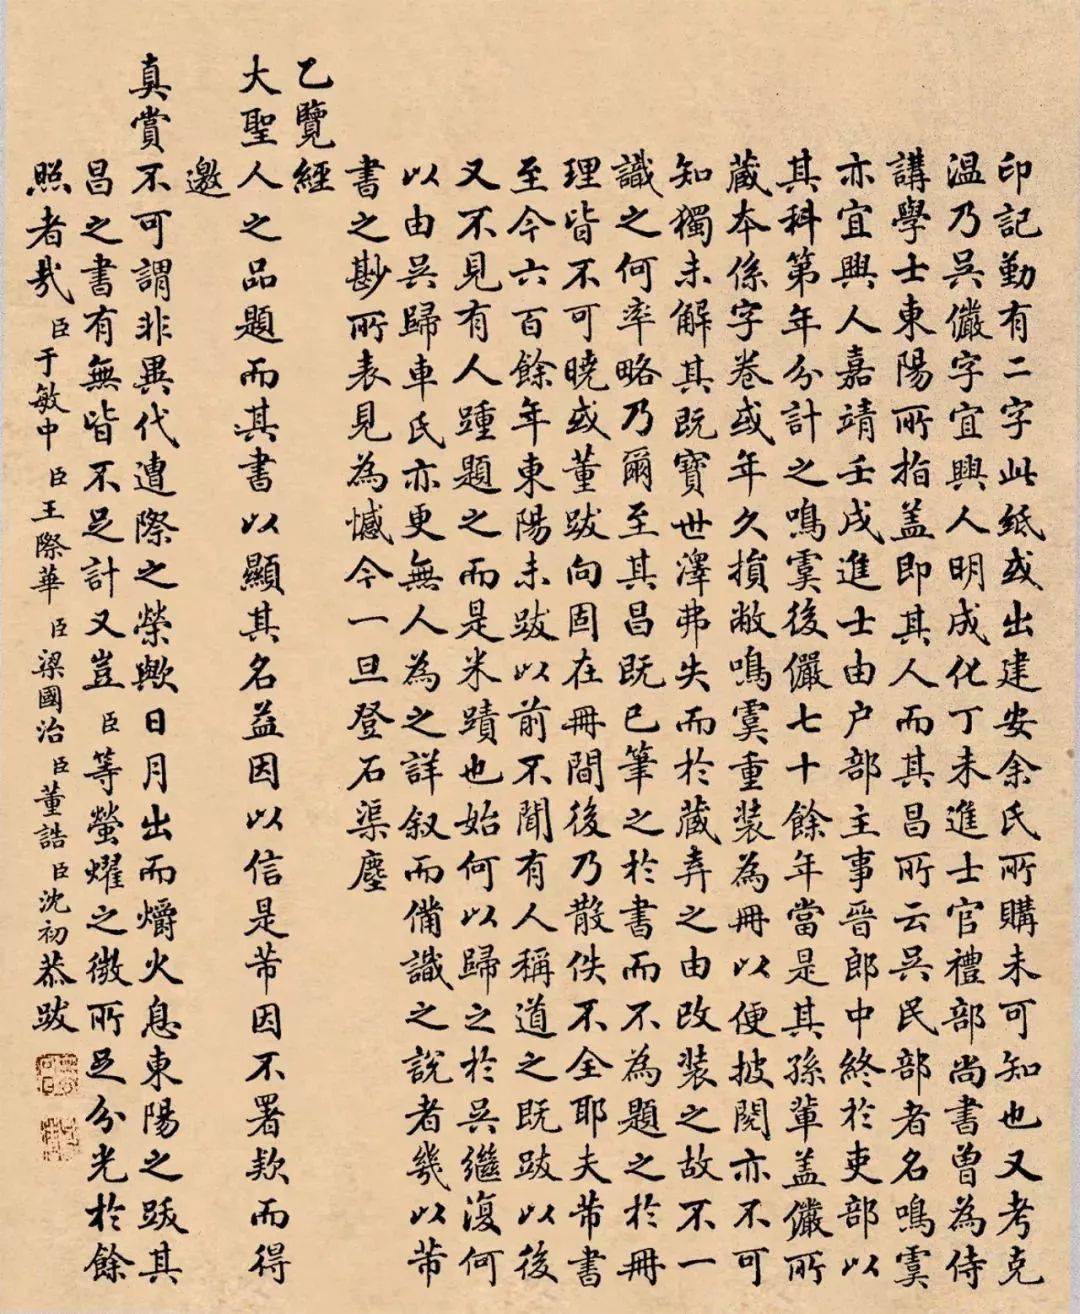 印記勤有二字此紙或出建安余氏所購未可知也又考克
温乃吳儼字宜興人明成化丁未進士官禮部尚書曽為侍
講學士東陽所指盖即其人而其昌所云吳民部者名鳴虞
亦宜興人嘉靖壬戌進士由户部主事晉郎中終於吏部以
其科第年分計之鳴虞後儼七十餘年當是其孫輩盖儼所
藏本係字卷或年久損敝鳴虞重装為冊以便披閱亦不可
知獨未解其既寶世澤弗失而於藏弆之由改装之故不一
識之何率略乃爾至其昌既已筆之於書而不為題之於冊
理皆不可曉或董跋向固在冊間後乃散佚不全耶夫芾書
至今六百餘年東陽未跋以前不聞有人稱道之既跋以後
又不見有人踵題之而是米蹟也始何以歸之於吳繼復何
以由吳歸車氏亦更無人為之詳叙而備識之說者幾以芾
書之尠所表見為憾今一旦登石渠塵
乙覽經
大聖人之品題而其書以顯其名益因以信是芾因不署欵而得
邀
真賞不可謂非異代遭際之榮歟日月出而爝火息東陽之跋其
昌之書有無皆不足計又豈臣等螢耀之微所足分光於餘
照者哉臣于敏中臣王際華臣梁國治臣董誥臣沈初恭跋